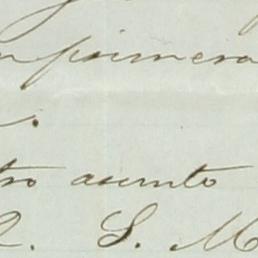 primera
tro asunto
Q. S. M